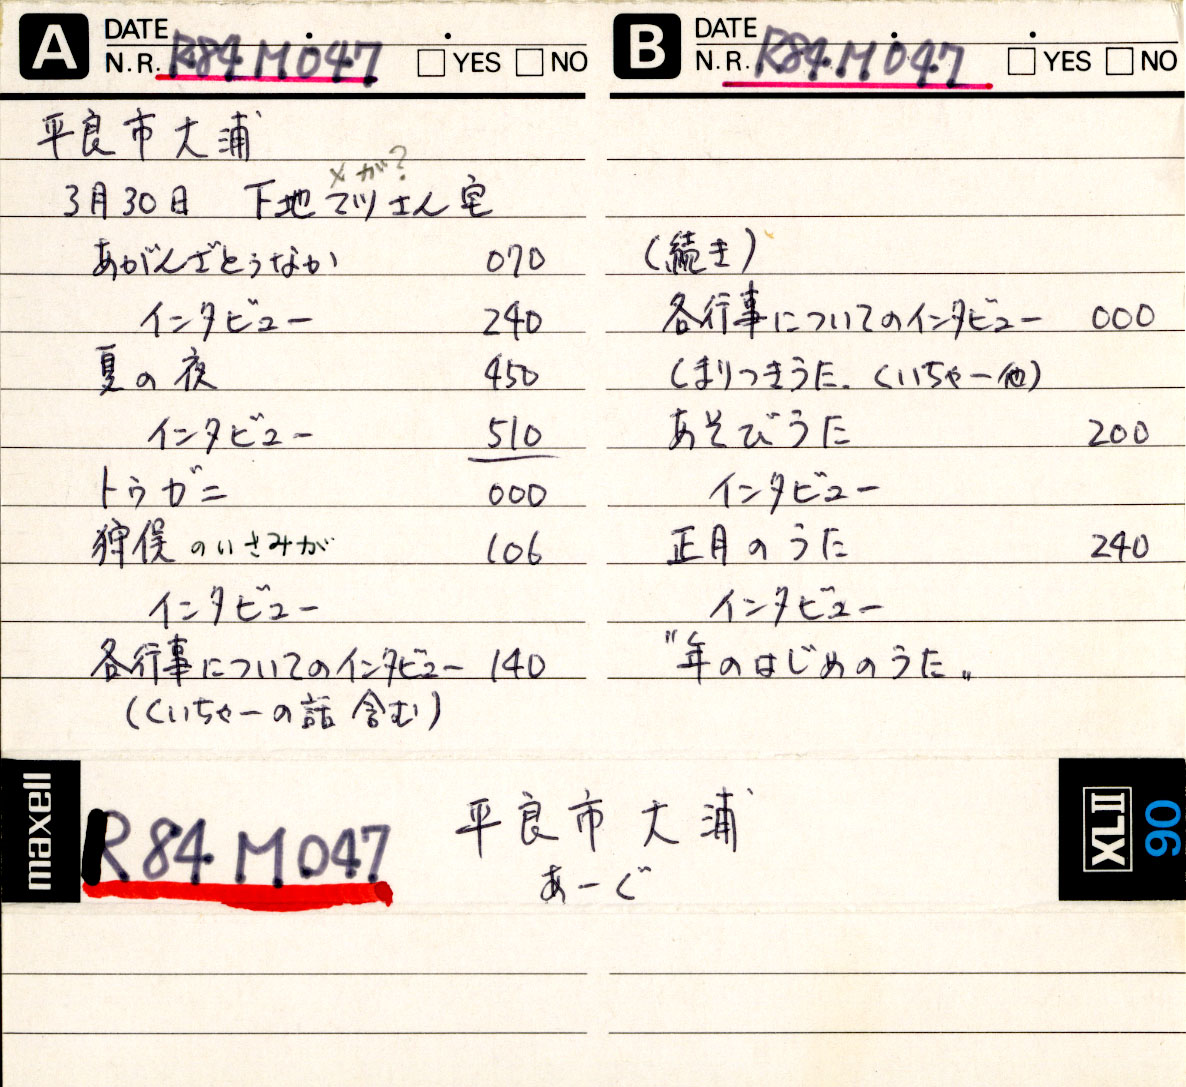 A DATE . .
N.R. R84M047 □ YES □ NO
平良市大浦
メガ?
3月30日 下地マツさん宅
あがんざとぅなか 070
インタビュー 240
夏の夜 450
インタビュー 510
トゥガニ 000
狩俣のいさみが 106
インタビュー
各行事についてのインタビュー 140
(くいちゃーの話含む)
B DATE . .
N.R. R84M047 □ YES □ NO
(続き)
各行事についてのインタビュー 000
(まりつきうた、くいちゃー他)
あそびうた 200
インタビュー
正月のうた 240
インタビュー
"年のはじめのうた"
maxell
R84M047
平良市大浦
あーぐ
XLII 90